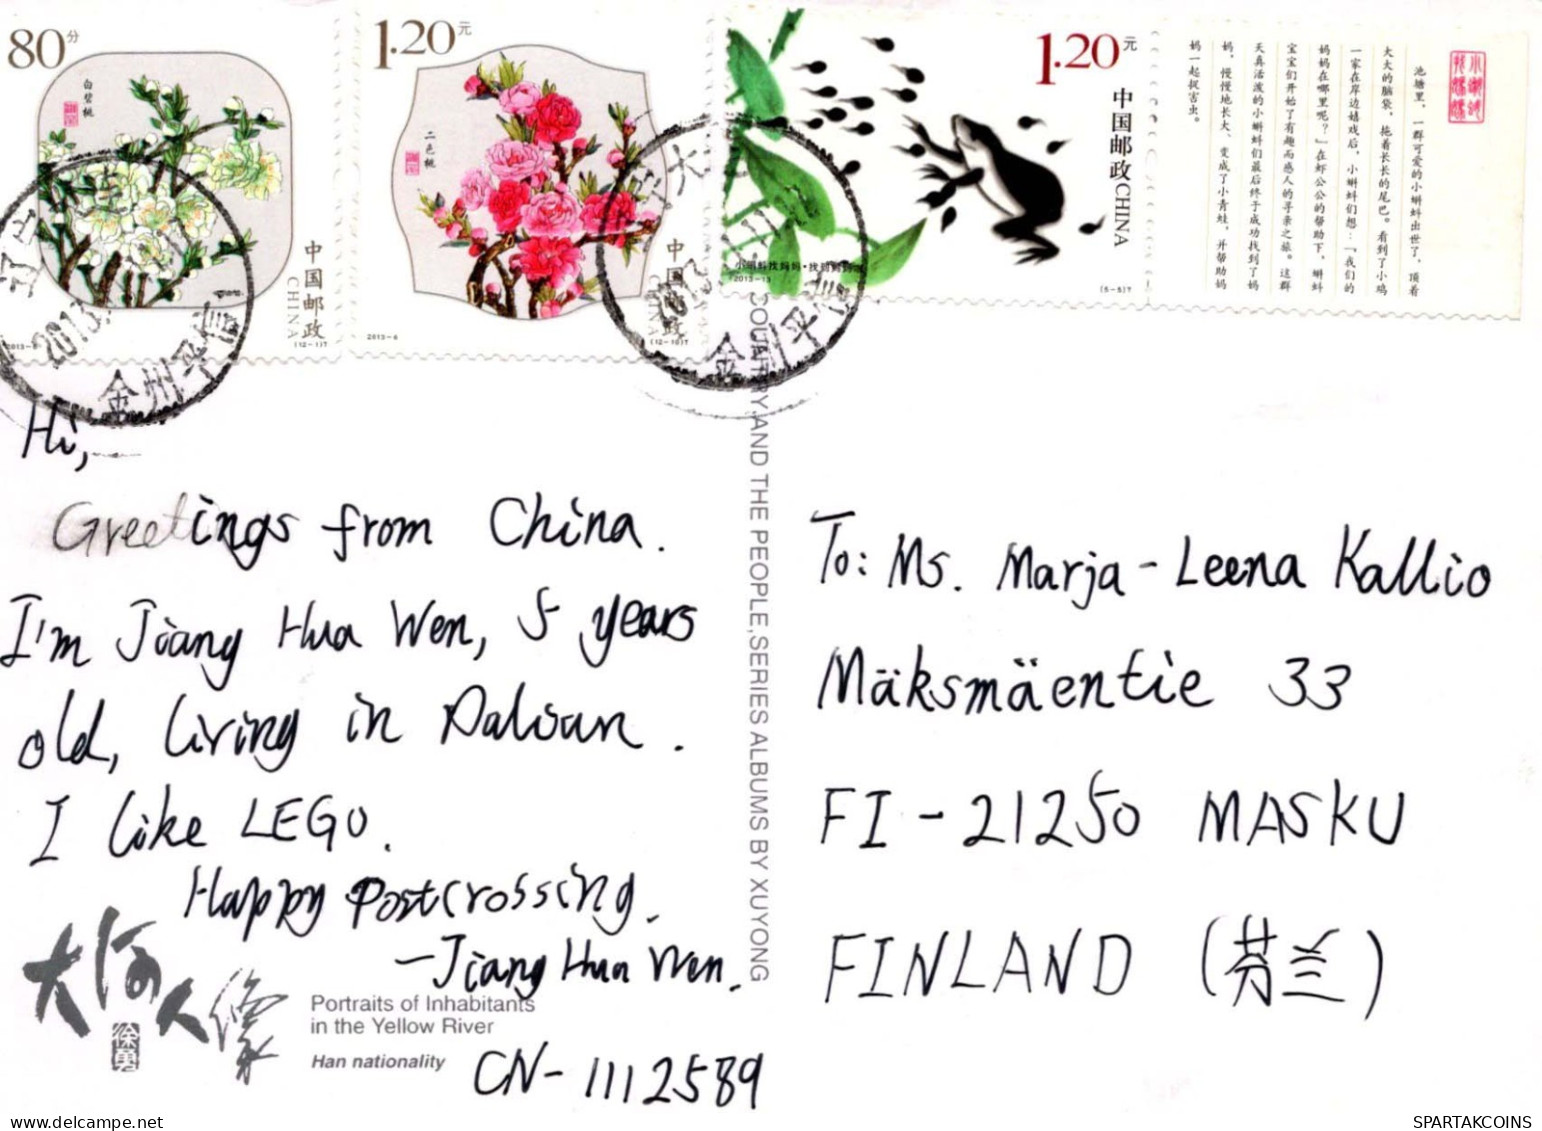 80分
白碧桃
中国邮政
CHINA
(12-1)T
1.20元
二色桃
2013-6
中国邮政
CHINA
(12-10)T
1.20元
中国邮政
CHINA
小蝌蚪找妈妈·找妈妈
2013-13
(5-5)T
池塘里，一群可爱的小蝌蚪出世了，顶着
大大的脑袋，拖着长长的尾巴。看到了小鸡
一家在岸边嬉戏后，小蝌蚪们想：“我们的
妈妈在哪里呢？”在虾公公的帮助下，蝌蚪
宝宝们开始了有趣而感人的寻亲之旅。这群
天真活泼的小蝌蚪们最后终于成功找到了妈
妈，慢慢地长大、变成了小青蛙，并帮助妈
妈一起捉害虫。
2013
金州平信
2013
金州平信
Hi,
Greetings from China.
I'm Jiang Hua Wen, 5 years
old, living in Dalian.
I like LEGO.
Happy Postcrossing.
-Jiang Hua Wen.
CN-1112589
大河人像
徐勇
Portraits of Inhabitants
in the Yellow River
Han nationality
COUNTRY,AND THE PEOPLE,SERIES ALBUMS BY XUYONG
To: Ms. Marja-Leena Kallio
Mäksmäentie 33
FI-21250 MASKU
FINLAND (芬兰)
SPARTAKCOINS